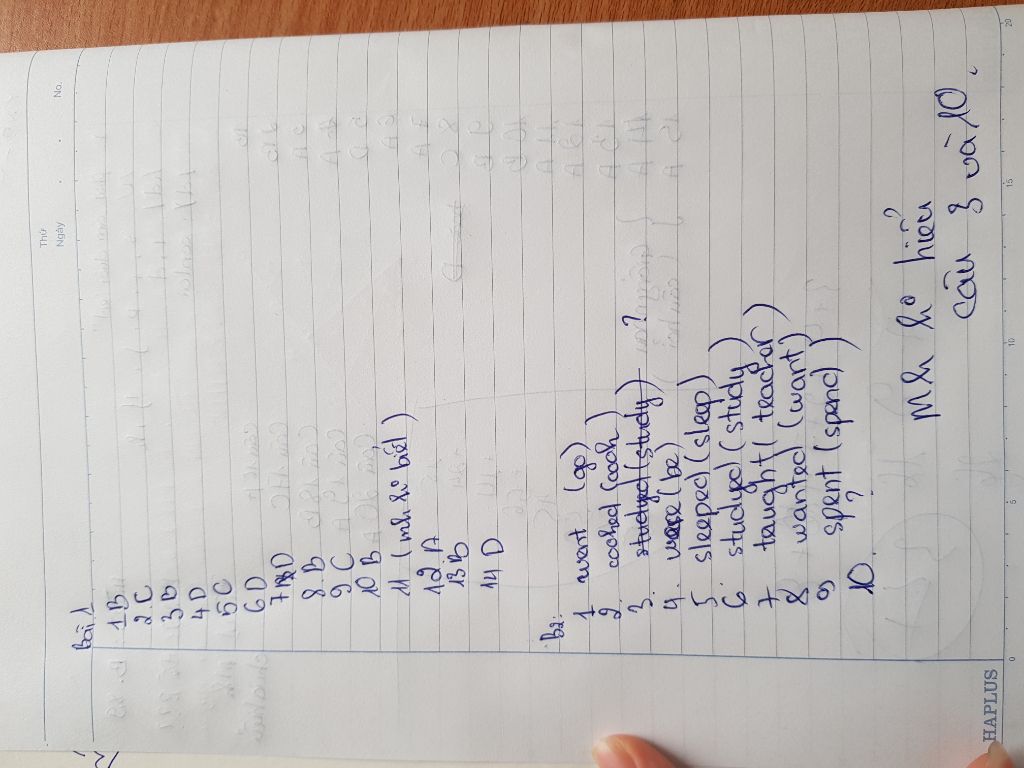 Thứ
Ngày
No.
Bài 1
1 B
2 C
3 D
4 D
5 C
6 D
7 D
8 B
9 C
10 B
11 (mk ko biết)
12 A
13 B
14 D
B2:
1 went (go)
2. cooked (cook)
3. studyed (study) ?
4. were (be)
5 sleeped (sleep)
6. studyed (study)
7 taught (teacher)
8 wanted (want)
9 spent (spend)
10. ?
mk ko hiểu
câu 3 và 10.
HAPLUS
0 5 10 15 20